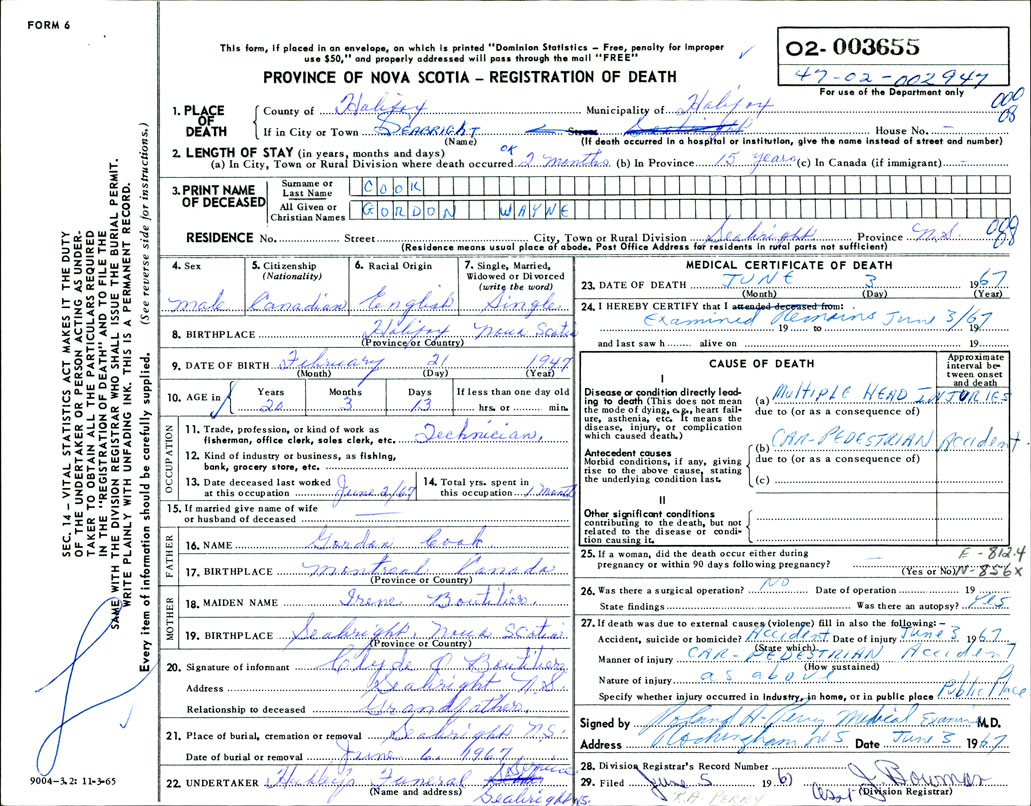 FORM 6
This form, if placed in an envelope, on which is printed "Dominion Statistics – Free, penalty for improper
use $50," and properly addressed will pass through the mail "FREE"
PROVINCE OF NOVA SCOTIA – REGISTRATION OF DEATH
02- 003655
47-02-002947
For use of the Department only
000
08
1. PLACE OF DEATH
County of Halifax Municipality of Halifax
If in City or Town SEABRIGHT Street House No. –
(Name) (If death occurred in a hospital or institution, give the name instead of street and number)
2. LENGTH OF STAY (in years, months and days) OK
(a) In City, Town or Rural Division where death occurred 2 months (b) In Province 15 years (c) In Canada (if immigrant) –
3. PRINT NAME OF DECEASED
Surname or Last Name COOK
All Given or Christian Names GORDON WAYNE
RESIDENCE No. Street City, Town or Rural Division Seabright Province N.S. 000 08
(Residence means usual place of abode. Post Office Address for residents in rural parts not sufficient)
4. Sex
male
5. Citizenship (Nationality)
Canadian
6. Racial Origin
English
7. Single, Married, Widowed or Divorced (write the word)
Single
8. BIRTHPLACE Halifax Nova Scotia
(Province or Country)
9. DATE OF BIRTH February 21 1947
(Month) (Day) (Year)
10. AGE in Years Months Days If less than one day old
20 3 13 hrs. or min.
OCCUPATION
11. Trade, profession, or kind of work as fisherman, office clerk, sales clerk, etc. Technician.
12. Kind of industry or business, as fishing, bank, grocery store, etc.
13. Date deceased last worked at this occupation June 2/67
14. Total yrs. spent in this occupation 1 month
15. If married give name of wife or husband of deceased
FATHER
16. NAME Gordon Cook
17. BIRTHPLACE Montreal Canada
(Province or Country)
MOTHER
18. MAIDEN NAME Irene Boutilier.
19. BIRTHPLACE Seabright, Nova Scotia
(Province or Country)
20. Signature of informant Clyde O Boutilier
Address Seabright N.S.
Relationship to deceased Grandfather
21. Place of burial, cremation or removal Seabright N.S.
Date of burial or removal June 6. 1967
22. UNDERTAKER Funeral Service
(Name and address) Seabright NS.
9004-3.2: 11-3-65
MEDICAL CERTIFICATE OF DEATH
23. DATE OF DEATH JUNE 3 1967
(Month) (Day) (Year)
24. I HEREBY CERTIFY that I attended deceased from:
Examined Remains June 3/67
19 to 19
and last saw h alive on 19
CAUSE OF DEATH
Approximate interval between onset and death
I
Disease or condition directly leading to death (This does not mean the mode of dying, e.g., heart failure, asthenia, etc. It means the disease, injury, or complication which caused death.)
(a) MULTIPLE HEAD INJURIES
due to (or as a consequence of)
Antecedent causes
Morbid conditions, if any, giving rise to the above cause, stating the underlying condition last.
(b) CAR-PEDESTRIAN Accident
due to (or as a consequence of)
(c)
II
Other significant conditions
contributing to the death, but not related to the disease or condition causing it.
25. If a woman, did the death occur either during pregnancy or within 90 days following pregnancy? –
(Yes or No)
E - 812.4
N - 856x
26. Was there a surgical operation? NO Date of operation 19
State findings Was there an autopsy? Yes
27. If death was due to external causes (violence) fill in also the following: –
Accident, suicide or homicide? Accident Date of injury June 3 1967
(State which)
Manner of injury CAR-PEDESTRIAN Accident
(How sustained)
Nature of injury as above
Specify whether injury occurred in industry, in home, or in public place Public Place
Signed by Roland A. Perry Medical Examiner M.D.
Address Rockingham NS Date June 3 1967
28. Division Registrar's Record Number
29. Filed June 5 1967
(Division Registrar)
R.A. PERRY
SEC. 14 – VITAL STATISTICS ACT MAKES IT THE DUTY
OF THE UNDERTAKER OR PERSON ACTING AS UNDER-
TAKER TO OBTAIN ALL THE PARTICULARS REQUIRED
IN THE "REGISTRATION OF DEATH" AND TO FILE THE
SAME WITH THE DIVISION REGISTRAR WHO SHALL ISSUE THE BURIAL PERMIT.
WRITE PLAINLY WITH UNFADING INK. THIS IS A PERMANENT RECORD.
Every item of information should be carefully supplied. (See reverse side for instructions.)